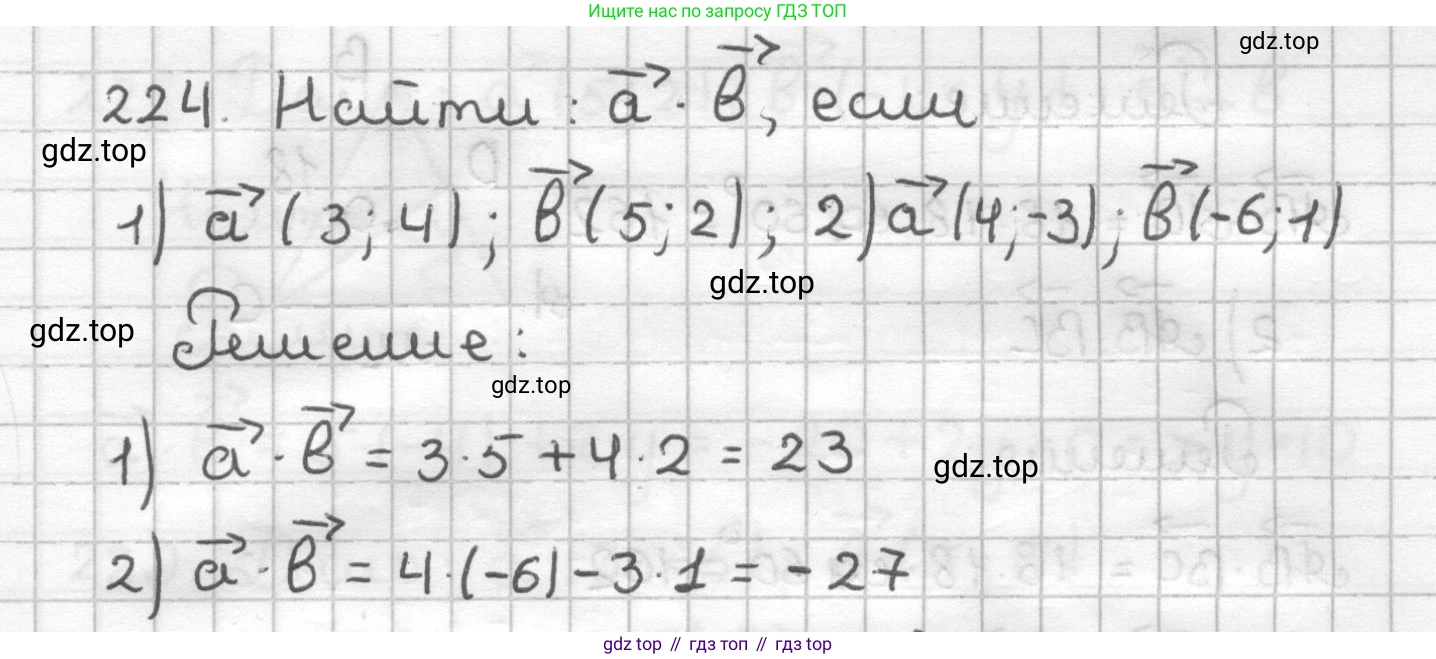 Ищите нас по запросу ГДЗ ТОП
gdz.top
224. Найти: a⃗ · b⃗, если
gdz.top
1) a⃗ (3; 4); b⃗ (5; 2); 2) a⃗ (4; -3); b⃗ (-6; 1)
gdz.top
gdz.top
Решение:
gdz.top
1) a⃗ · b⃗ = 3 · 5 + 4 · 2 = 23
gdz.top
2) a⃗ · b⃗ = 4 · (-6) - 3 · 1 = - 27
gdz top // гдз топ // gdz top